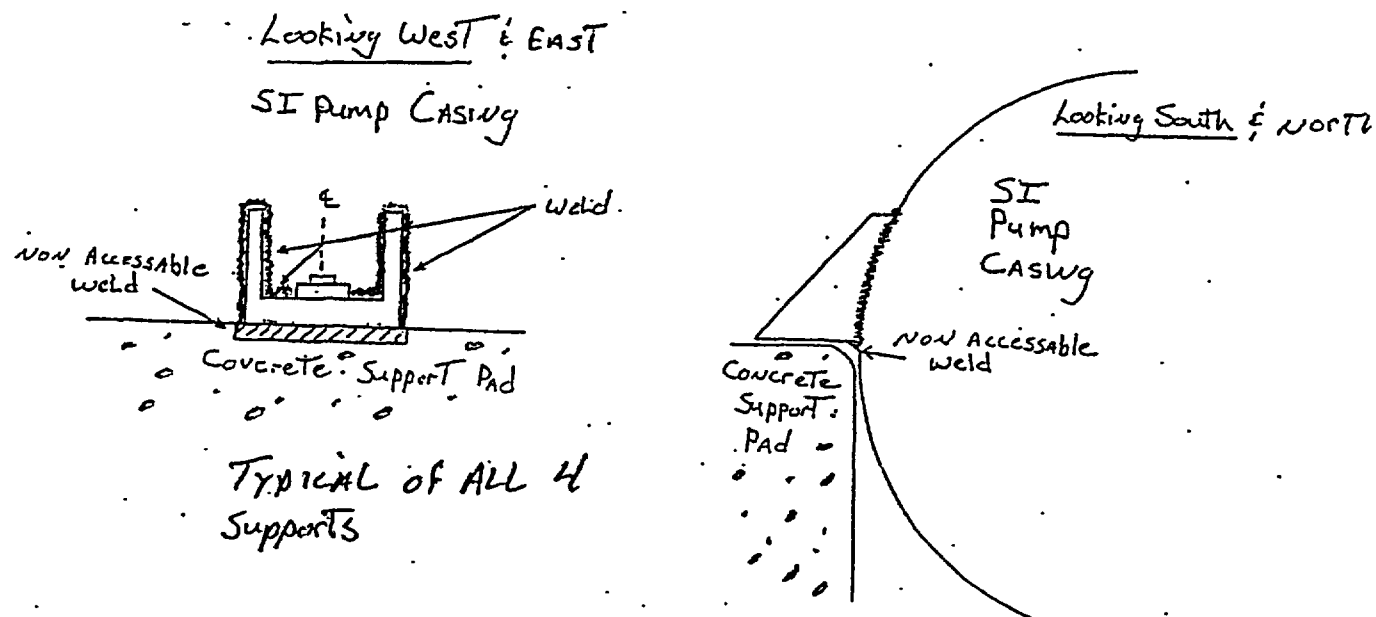 Looking West & EAST
SI Pump CASING
℄
weld
NON ACCESSABLE
weld
CONCRETE SUPPORT PAD
TYPICAL of ALL 4
Supports
Looking South & NORTH
SI
Pump
CASING
NON ACCESSABLE
weld
CONCRETE
SUPPORT
PAD